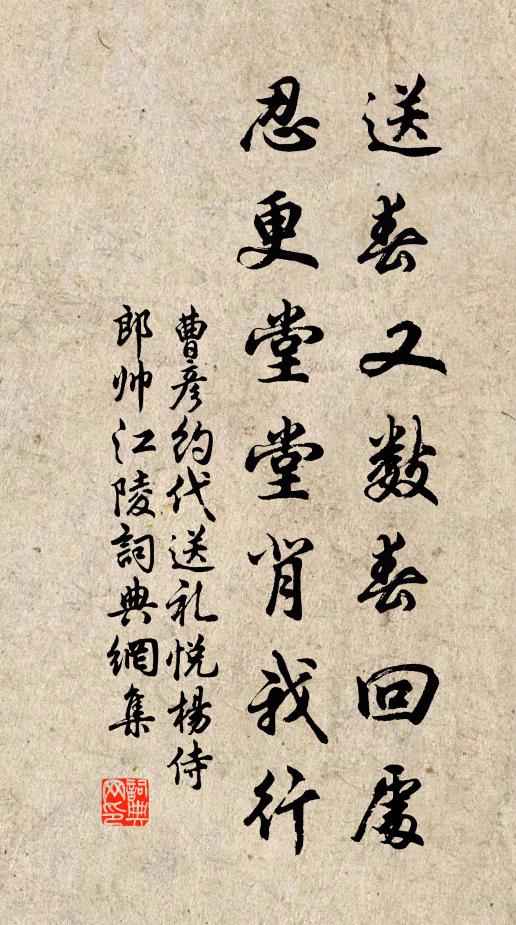 送春又數春回處
忍更堂堂背我行
曹彦約代送礼悦楊侍
郎帅江陵詞典網集
詞典
网印